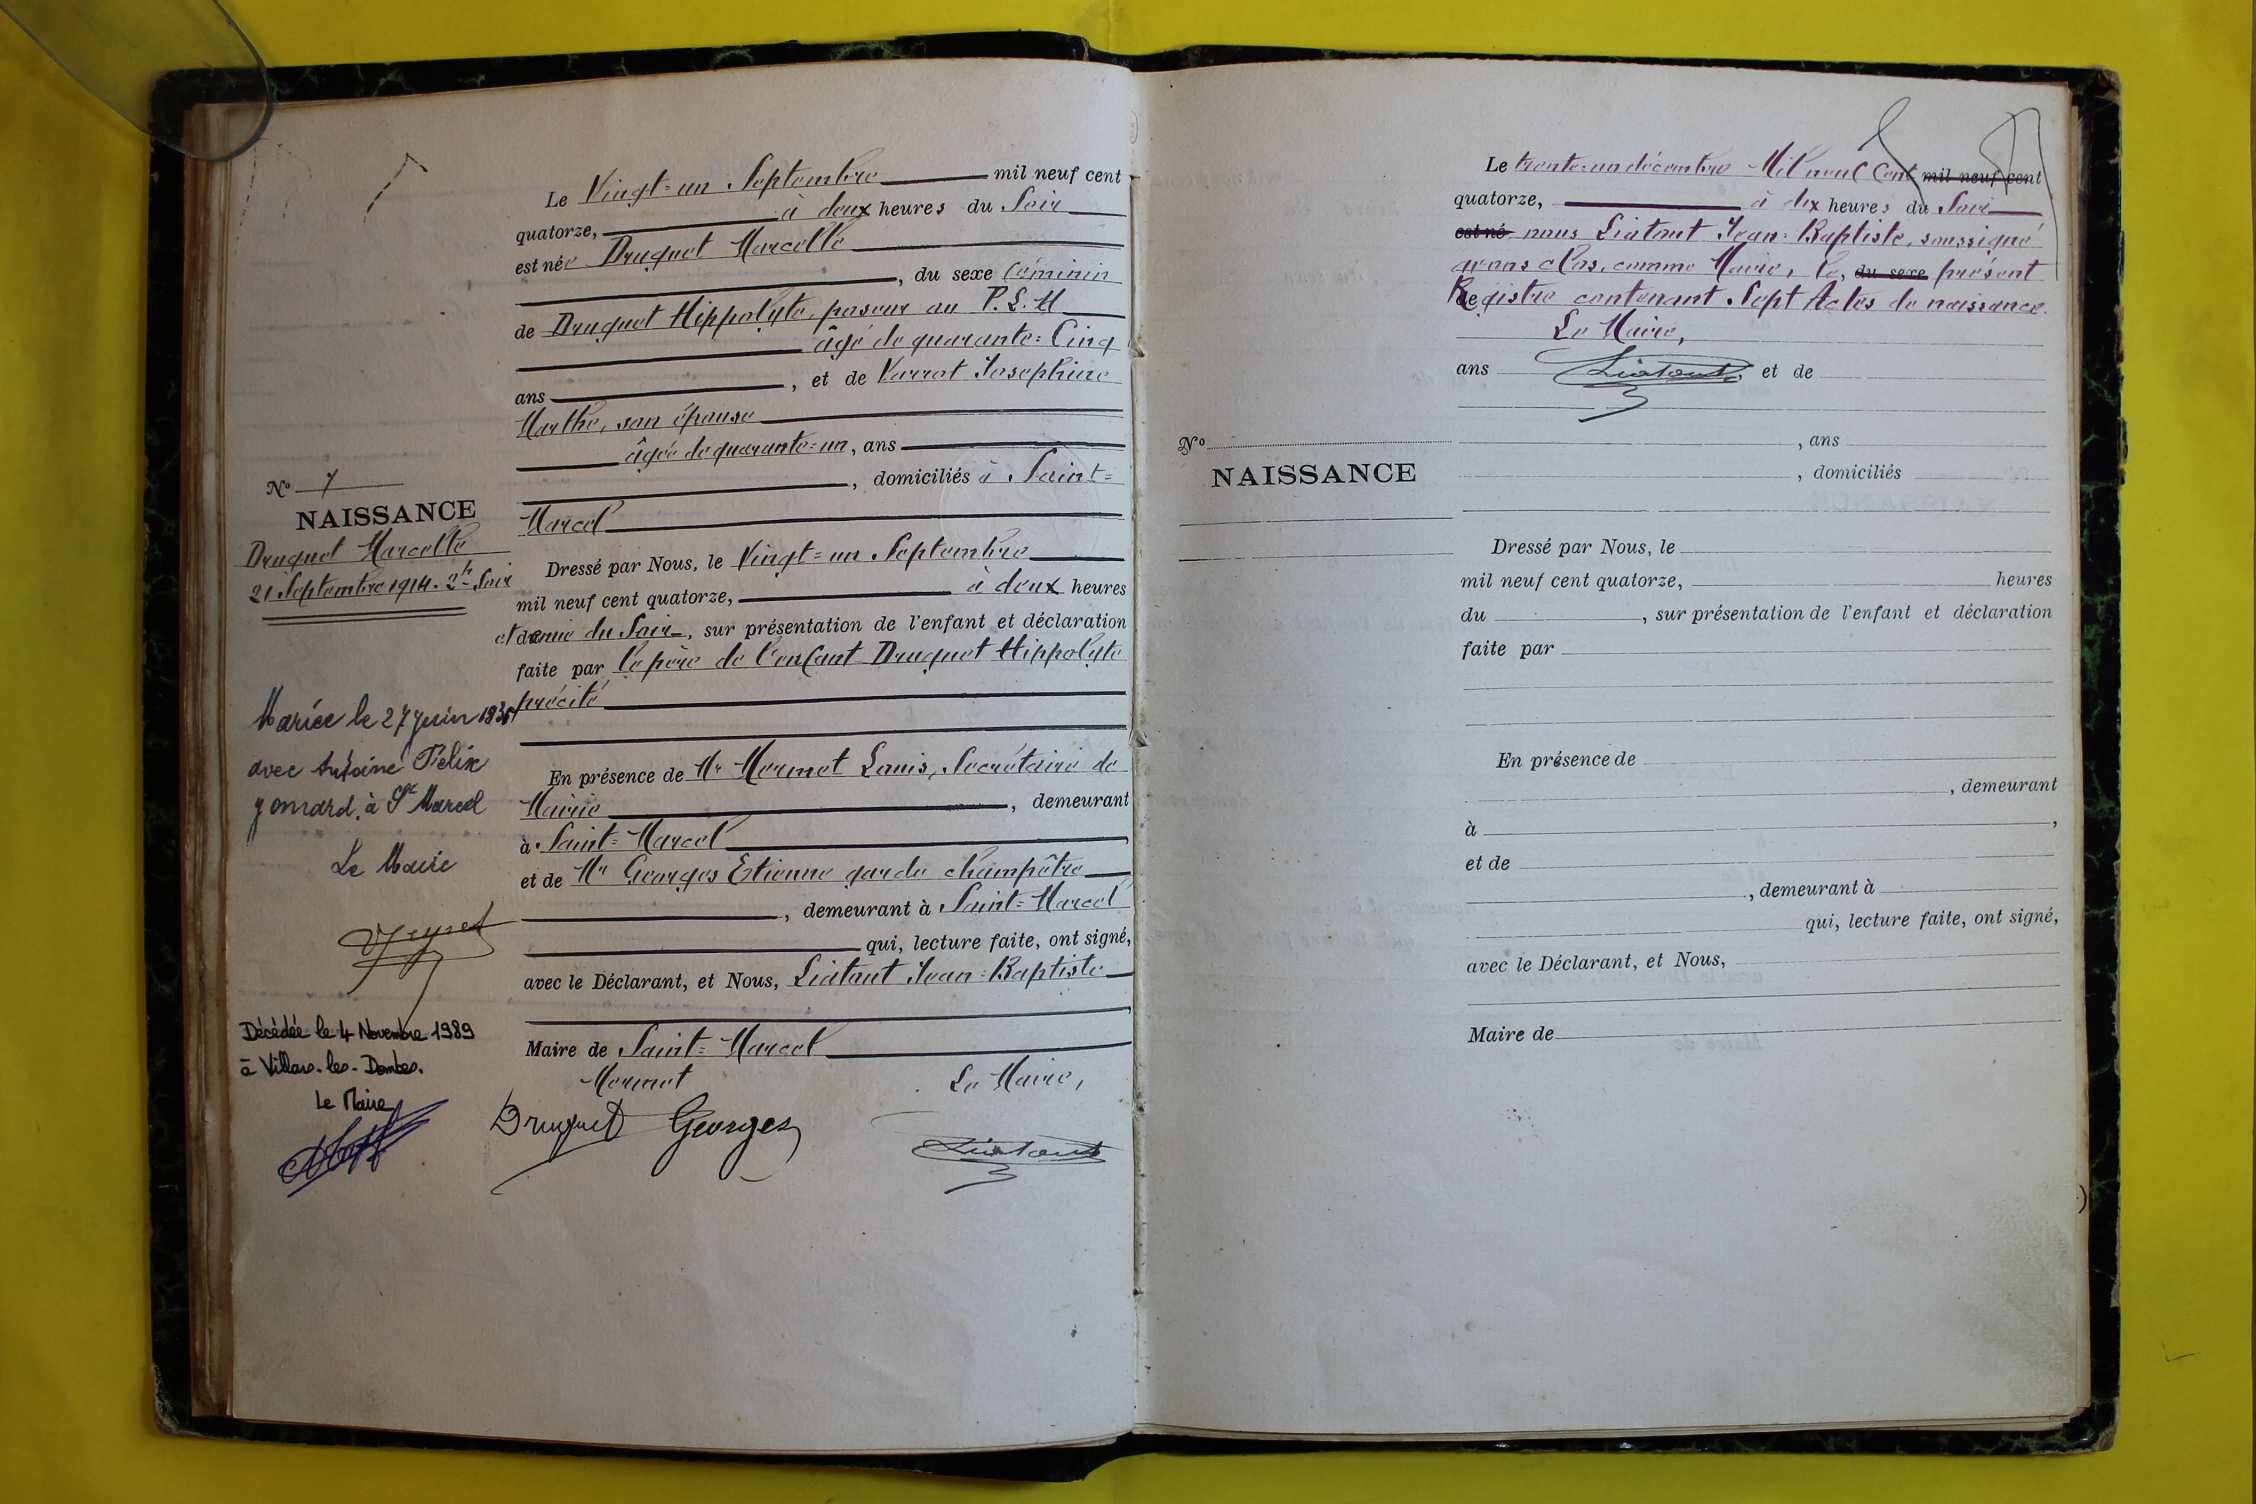 Le Vingt=un Septembre mil neuf cent
quatorze, à deux heures du Soir
est née Druguet Marcelle
, du sexe féminin
de Druguet Hippolyte, poseur au P.L.M
âgé de quarante=Cinq
ans , et de Varrot Josephine
Marthe, son épouse
âgée de quarante=un, ans
, domiciliés à Saint=
Marcel
N° 7
NAISSANCE
Druguet Marcelle
21 Septembre 1914. 2h Soir
Dressé par Nous, le Vingt=un Septembre
mil neuf cent quatorze, à deux heures
et demie du Soir, sur présentation de l'enfant et déclaration
faite par le père de l'enfant Druguet Hippolyte
précité
Mariée le 27 juin
avec Antoine Félix
à St Marcel
Le Maire
Décédée le 4 Novembre 1989
à Villars-les-Dombes.
Le Maire
En présence de Mr Mermet Louis, Secrétaire de
Mairie , demeurant
à Saint=Marcel
et de Mr Georges Etienne garde champêtre
, demeurant à Saint=Marcel
qui, lecture faite, ont signé,
avec le Déclarant, et Nous, Liatout Jean=Baptiste
Maire de Saint=Marcel
Mermet Le Maire,
Druguet Georges Liatout
Le trente=un décembre Mil neuf Cent mil neuf cent
quatorze, à dix heures du Soir
est né nous Liatout Jean=Baptiste, soussigné
avons clos, comme Maire, le, du sexe présent
Registre contenant Sept Actes de naissance.
Le Maire,
ans Liatout et de
, ans
N°
NAISSANCE
, domiciliés
Dressé par Nous, le
mil neuf cent quatorze, heures
du , sur présentation de l'enfant et déclaration
faite par
En présence de
, demeurant
à ,
et de
, demeurant à
qui, lecture faite, ont signé,
avec le Déclarant, et Nous,
Maire de